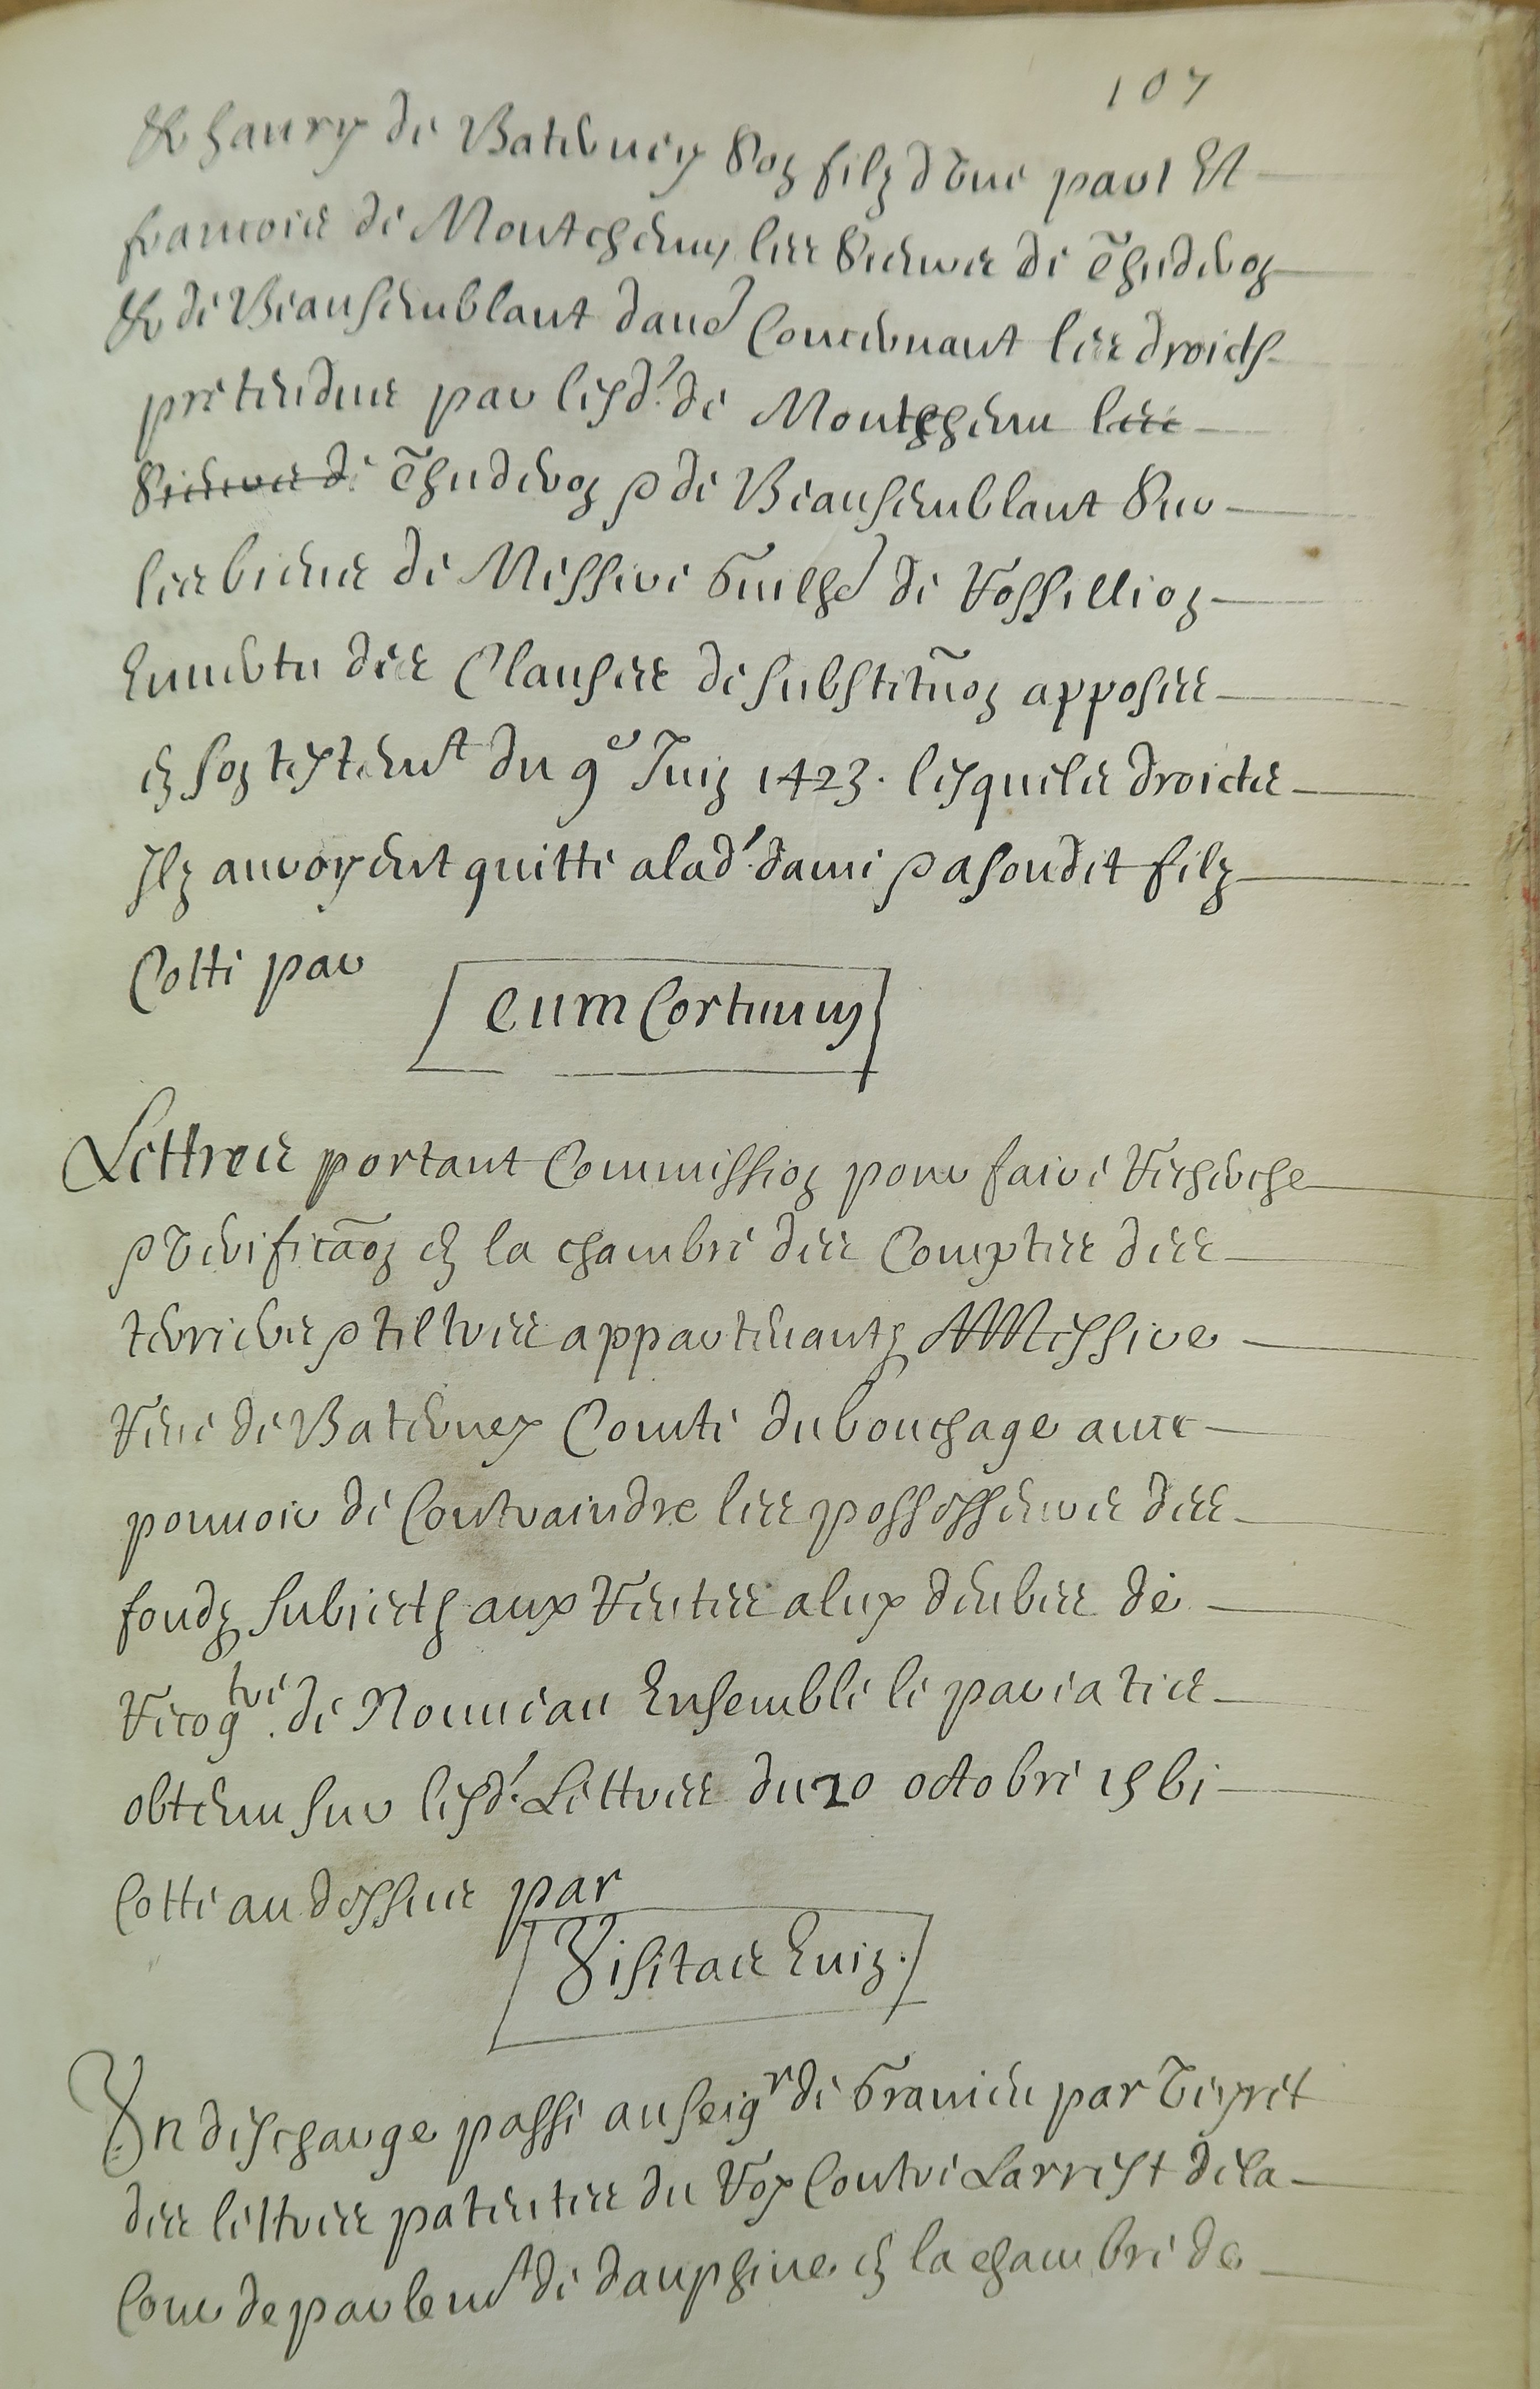 107
& haury de Baterney son filz d'une part Et
francois de Montchenu les sieurs de Thuderoz
& de Beausemblant dautre Concernant les droicts
pretendus par lesd. de Montchenu les
sieurs de Thuderoz & de Beausemblant sur
les biens de Messire Guilhe de Rossillion
Enuertu des Clauses de substituõn apposees
en son testemt du 9e Juin 1423. lesquels droictz
Ilz auroyent quitté a lad. dame & a sondit filz
Cotté par
Cum Cortinuy
Lettres portant Commission pour faire Recherche
& verificaõn en la chambre des Comptes des
terriers & tiltres appartenantz A Messire
René de Baterney Comte du bouchage auec
pouuoir de Contraindre les possesseurs des
fondz subiectz aux Rentes a luy deubes de
Recogtre. de Nouueau Ensemble le pareatis
obtenu sur lesd. Lettres du 20 octobre 1561
Cotté au dessus par
Visitaes Euiz.
Vn deschange passé au seigr de Granieu par Veyret
des lettres patentes du Roy Contre Larrest de la
Cour de parlemt de dauphine en la chambre de